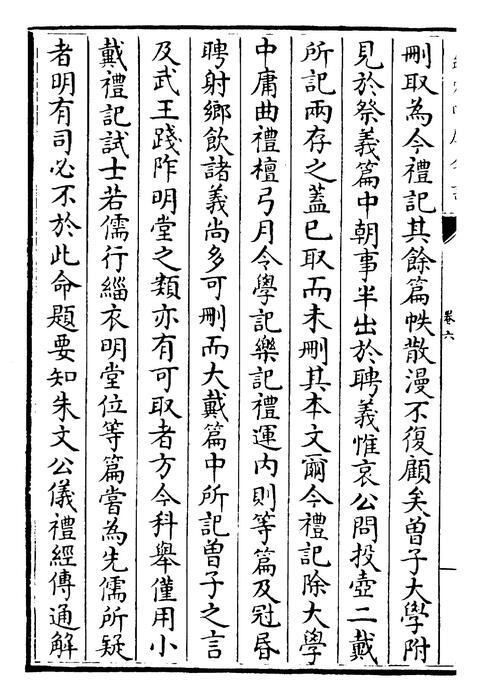 刪取為今禮記其餘篇帙散漫不復顧矣曽子大學附
見於祭義篇中朝事半出於聘義惟哀公問投壺二戴
所記兩存之蓋已取而未刪其本文爾今禮記除大學
中庸曲禮檀弓月令學記樂記禮運內則等篇及冠昏
聘射鄉飲諸義尚多可刪而大戴篇中所記曽子之言
及武王踐阼明堂之類亦有可取者方今科舉僅用小
戴禮記試士若儒行緇衣明堂位等篇嘗為先儒所疑
者明有司必不於此命題要知朱文公儀禮經傳通解
卷六